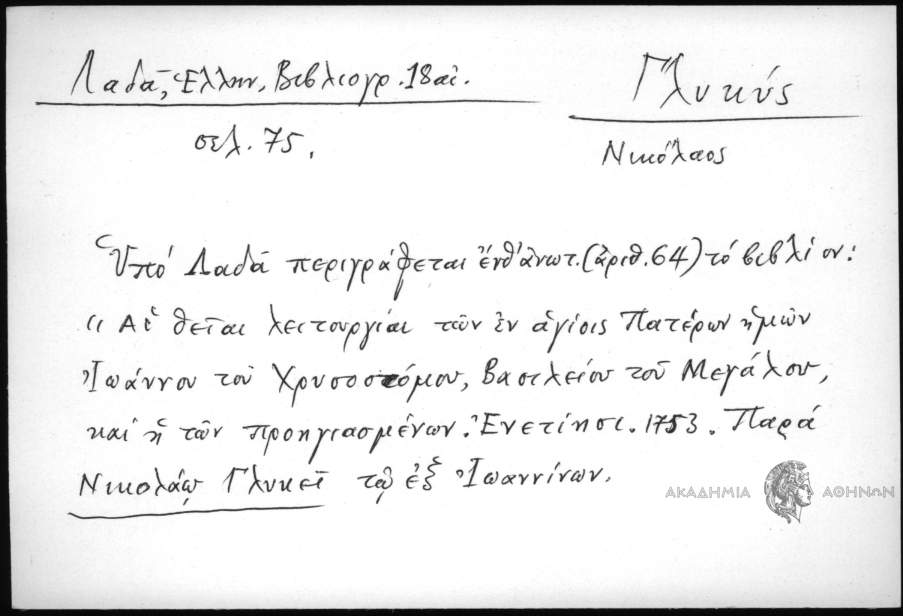 Λαδᾶ, Ἑλλην. Βιβλιογρ. 18 αἰ.
σελ. 75.
Γλυκύς
Νικόλαος
Ὑπό Λαδᾶ περιγράφεται ἐνθ' ἀνωτ. (ἀριθ. 64) τό βιβλίον:
« Αἱ θεῖαι λειτουργίαι τῶν ἐν ἁγίοις Πατέρων ἡμῶν
Ἰωάννου τοῦ Χρυσοστόμου, Βασιλείου τοῦ Μεγάλου,
καί ἡ τῶν προηγιασμένων. Ἐνετίησι. 1753. Παρά
Νικολάῳ Γλυκεῖ τῷ ἐξ Ἰωαννίνων.
ΑΚΑΔΗΜΙΑ ΑΘΗΝΩΝ